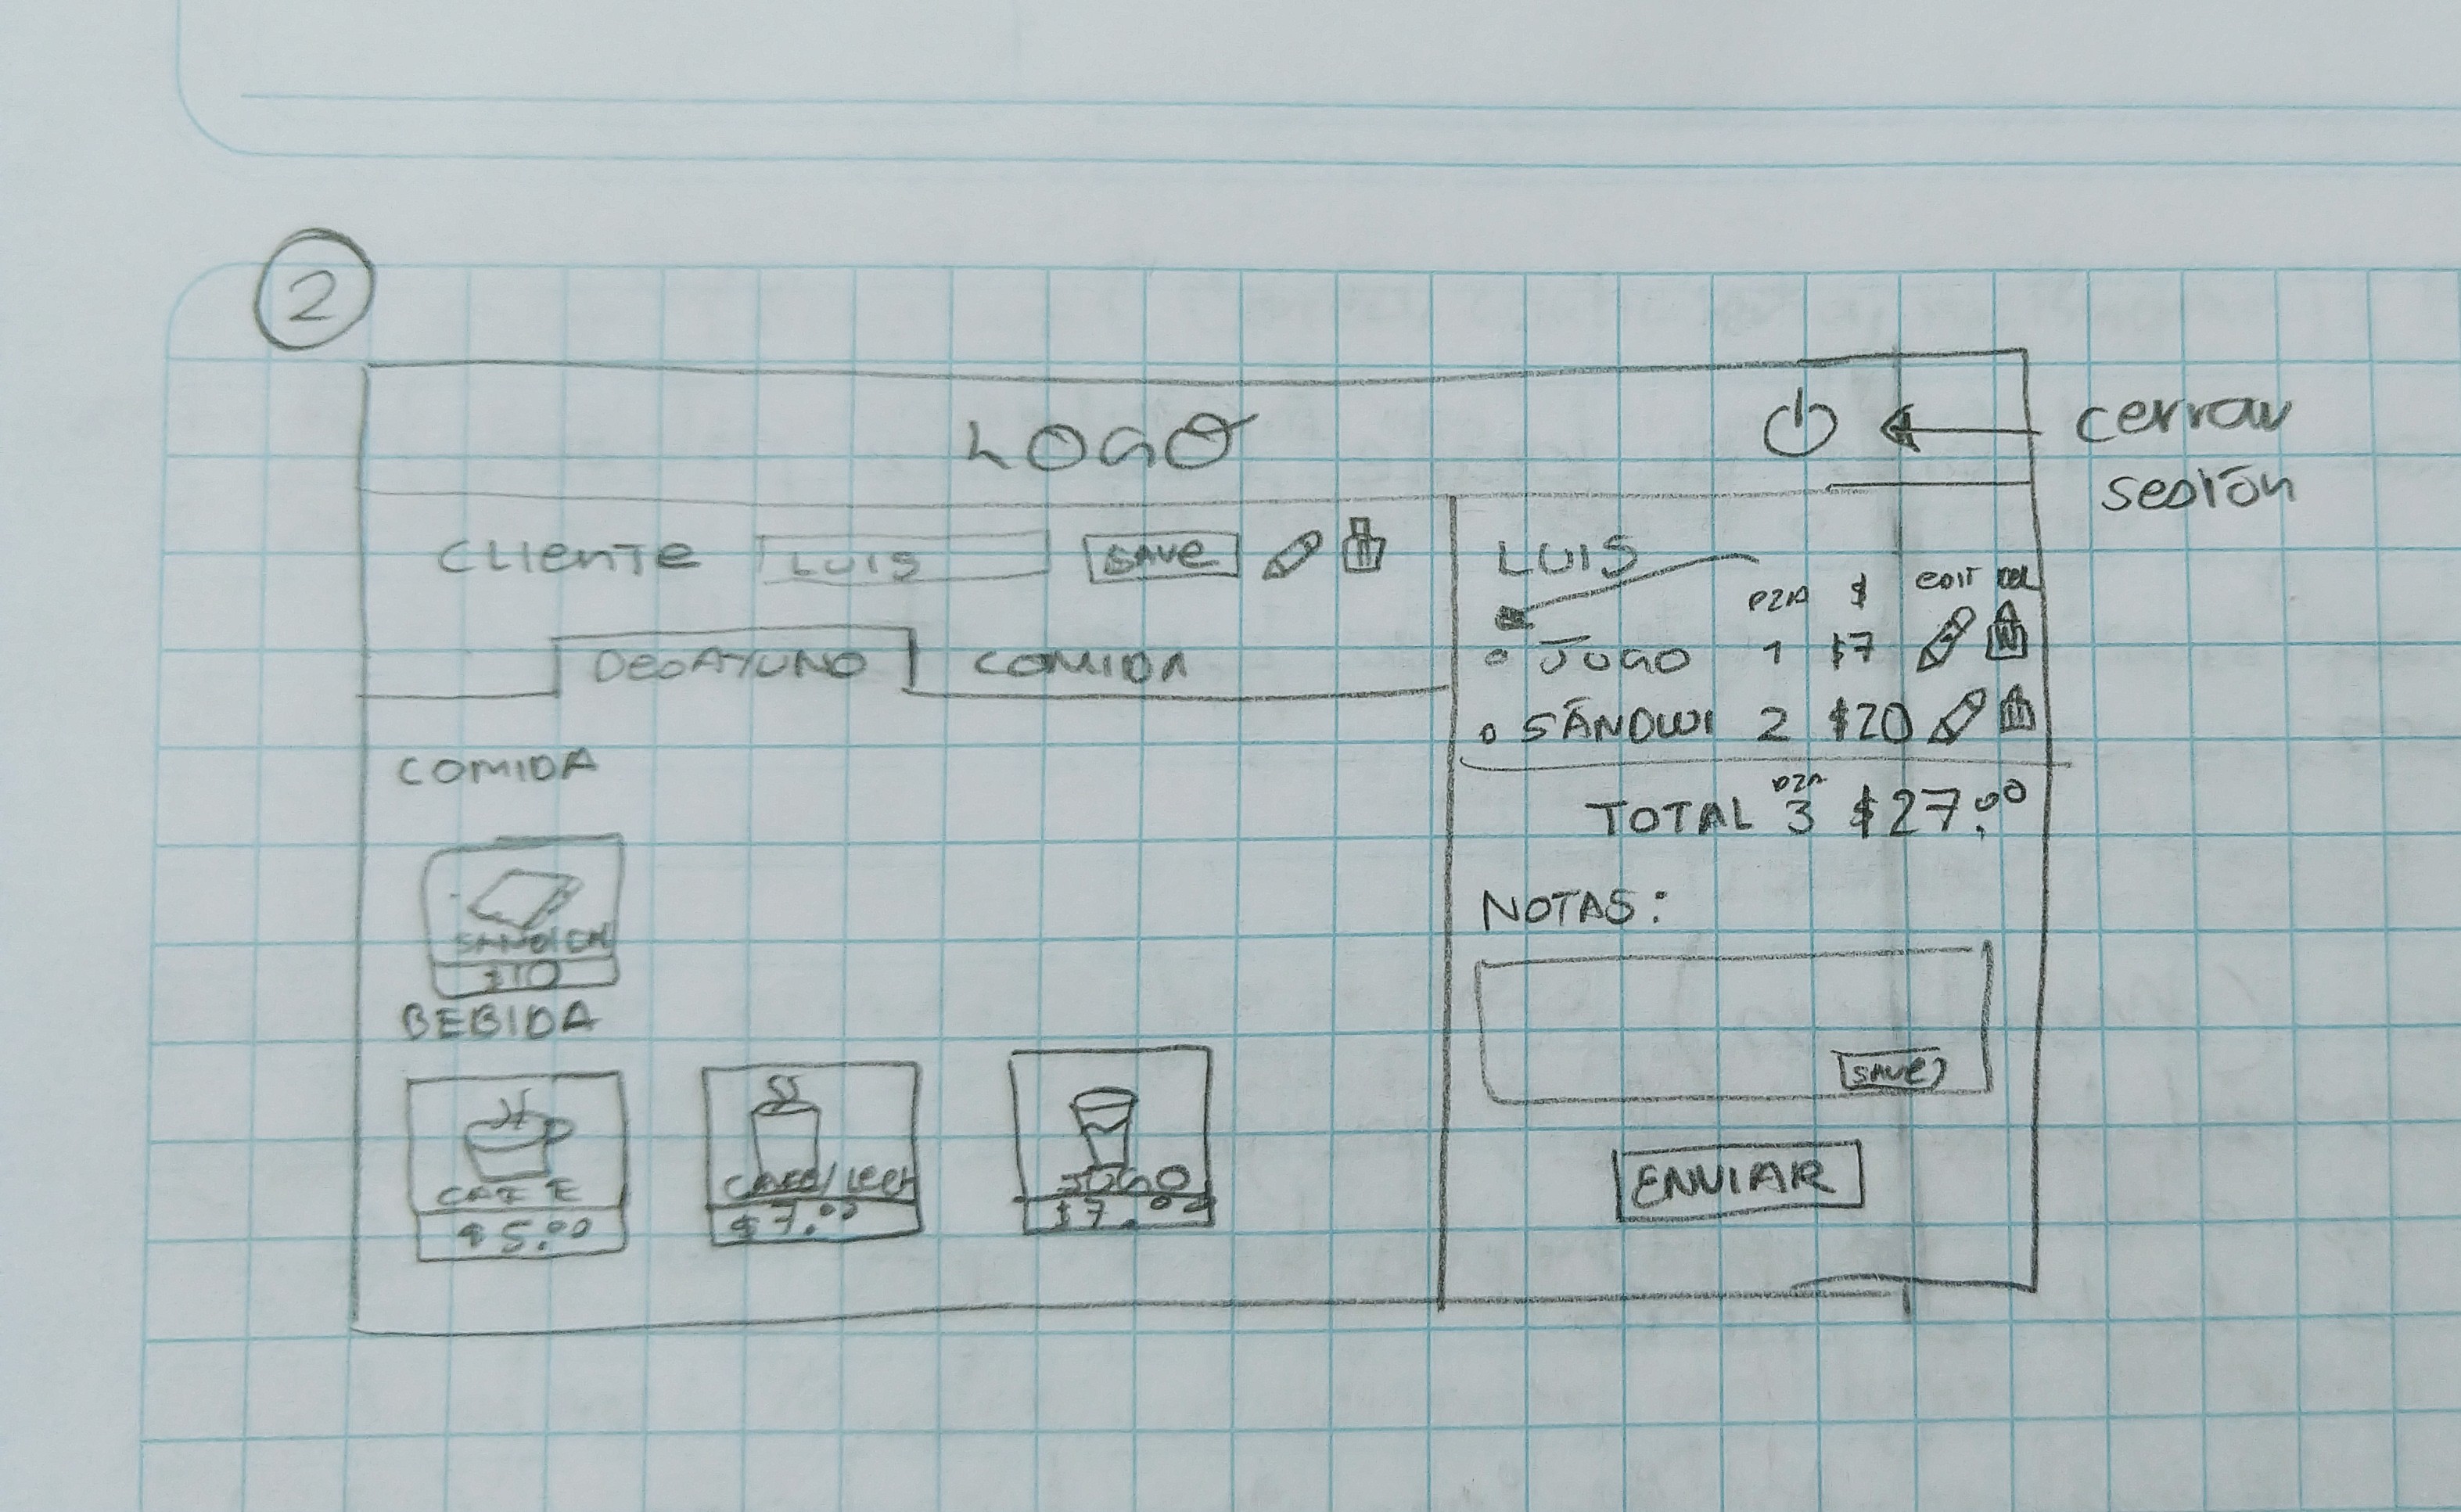 2
LOGO
cerrar
sesión
CLIENTE LUIS SAVE
DESAYUNO COMIDA
COMIDA
$10
BEBIDA
CAFE
$5.00
CAFE/LECH
$7.00
JUGO
$7.00
LUIS
PZA $ EDIT DEL
JUGO 1 $7
SANDWI 2 $20
PZA
TOTAL 3 $27.00
NOTAS:
SAVE
ENVIAR